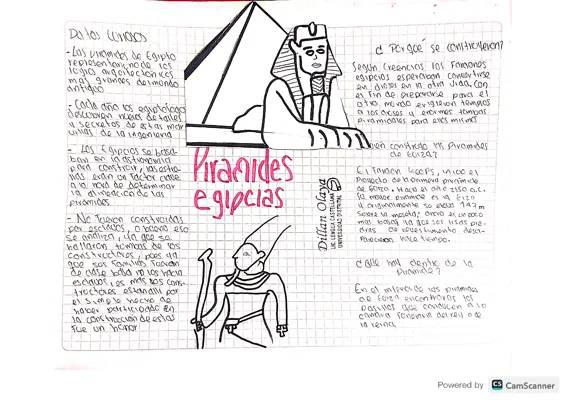 Datos Curiosos
- Las pirámides de Egipto
representan uno de los
logros arquitectónicos
mas grandes del mundo
antiguo
- Cada año los egiptólogos
descubren nuevos detalles
y secretos de estas mara
villas de la ingeniería
- Los Egipcios se basa
ban en la astronomía
para construir, las estre
llas eran un factor clave
a la hora de determinar
la alineación de las
pirámides
- No fueron construidas
por esclavos, o bueno eso
se analiza, ya que se
hallaron tumbas de los
constructores, pues ya
que sus familias fueran
de clase baja no los hacia
esclavos, es mas los cons-
tructores estando por
el simple hecho de
haber participado en
la construcción de estas
fue un honor
Piramides
egipcias
Dillan Olaya
LIC. LENGUA CASTELLANA
UNIVERSIDAD DISTRITAL
¿Por qué se construyeron?
Según creencias los Faraones
egipcios esperaban convertirse
en dioses en la otra vida, con
el fin de prepararse para el
otro mundo erigieron templos
a los dioses y enormes tumbas
piramidales para ellos mismos
construyó las pirámides
de Giza?
El Faraón Keops, inicio el
proyecto de la primera pirámide
de Giza, Hacia el año 2550 a.C.
la mayor pirámide es la Giza
y originalmente se elevó 147 m
sobre la meseta, ahora es un poco
mas baja ya que sus lisas pie-
dras de revestimiento desa-
parecieron hace tiempo.
¿Qué hay dentro de la
Piramide?
En el interior de las pirámides
de Giza encontraras los
pasillos que conducen a la
cámara funeraria del rey o de
la reina.
Powered by CS CamScanner